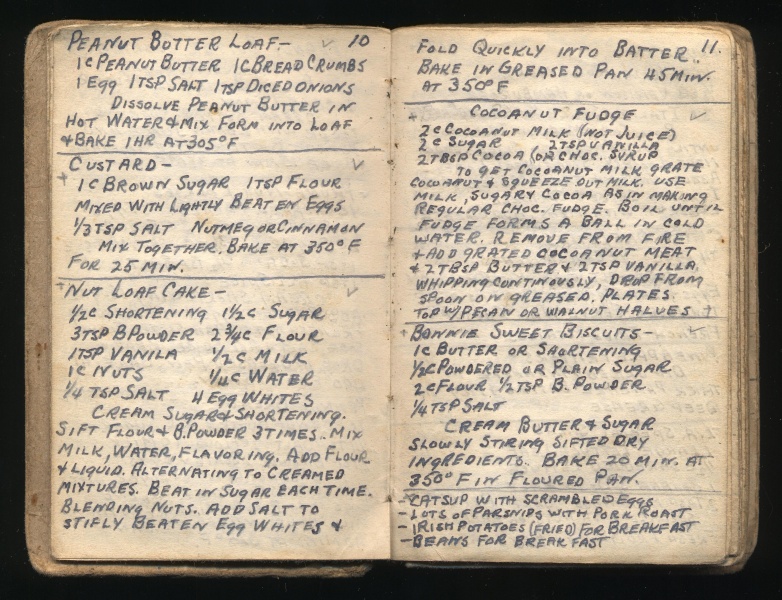 PEANUT BUTTER LOAF- 10
1C PEANUT BUTTER 1C BREAD CRUMBS
1 EGG 1TSP SALT 1TSP DICED ONIONS
DISSOLVE PEANUT BUTTER IN
HOT WATER & MIX FORM INTO LOAF
& BAKE 1 HR AT 305°F
CUSTARD-
1C BROWN SUGAR 1TSP FLOUR
MIXED WITH LIGHTLY BEATEN EGGS
1/3 TSP SALT NUTMEG OR CINNAMON
MIX TOGETHER. BAKE AT 350°F
FOR 25 MIN.
NUT LOAF CAKE-
1/2C SHORTENING 1 1/2C SUGAR
3TSP B.POWDER 2 3/4C FLOUR
1TSP VANILA 1/2C MILK
1C NUTS 1/4C WATER
1/4 TSP SALT 4 EGG WHITES
CREAM SUGAR & SHORTENING.
SIFT FLOUR & B.POWDER 3 TIMES. MIX
MILK, WATER, FLAVORING. ADD FLOUR
& LIQUID. ALTERNATING TO CREAMED
MIXTURES. BEAT IN SUGAR EACH TIME.
BLENDING NUTS. ADD SALT TO
STIFLY BEATEN EGG WHITES &
FOLD QUICKLY INTO BATTER. 11.
BAKE IN GREASED PAN 45 MIN.
AT 350°F
COCOANUT FUDGE
2C COCOANUT MILK (NOT JUICE)
2C SUGAR 2TSP VANILLA
2TBSP COCOA (OR CHOC. SYRUP
TO GET COCOANUT MILK GRATE
COCOANUT & SQUEEZE OUT MILK. USE
MILK, SUGAR & COCOA AS IN MAKING
REGULAR CHOC. FUDGE. BOIL UNTIL
FUDGE FORMS A BALL IN COLD
WATER. REMOVE FROM FIRE
& ADD GRATED COCOANUT MEAT
& 2TBSP BUTTER & 2TSP VANILLA
WHIPPING CONTINOUSLY, DROP FROM
SPOON ON GREASED PLATES
TOP W/PECAN OR WALNUT HALVES
BONNIE SWEET BISCUITS-
1C BUTTER OR SHORTENING
1/2C POWDERED OR PLAIN SUGAR
2C FLOUR 1/2TSP B. POWDER
1/4 TSP SALT
CREAM BUTTER & SUGAR
SLOWLY STIRING SIFTED DRY
INGREDIENTS. BAKE 20 MIN. AT
350°F IN FLOURED PAN.
-CATSUP WITH SCRAMBLED EGGS
-LOTS OF PARSNIPS WITH PORK ROAST
-IRISH POTATOES (FRIED) FOR BREAKFAST
-BEANS FOR BREAKFAST